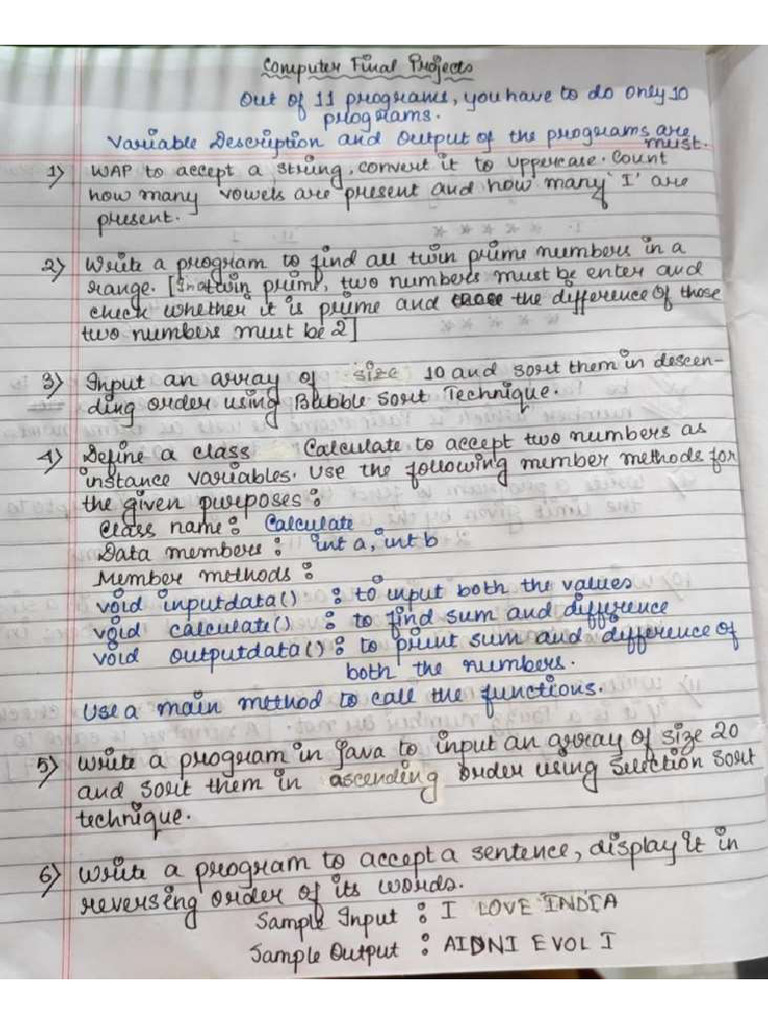 Computer Final Projects
Out of 11 programs, you have to do only 10
programs.
Variable Description and Output of the programs are
must.
1) WAP to accept a string, convert it to uppercase. Count
how many vowels are present and how many 'I' are
present.
2) Write a program to find all twin prime numbers in a
range. [In twin prime, two numbers must be enter and
check whether it is prime and the difference of those
two numbers must be 2]
3) Input an array of size 10 and sort them in descen-
ding order using Bubble Sort Technique.
4) Define a class Calculate to accept two numbers as
instance variables. Use the following member methods for
the given purposes :
Class name : Calculate
Data members : int a, int b
Member methods :
void inputdata() : to input both the values
void calculate() : to find sum and difference
void outputdata() : to print sum and difference of
both the numbers.
Use a main method to call the functions.
5) Write a program in Java to input an array of size 20
and sort them in ascending order using Selection Sort
technique.
6) Write a program to accept a sentence, display it in
reversing order of its words.
Sample Input : I LOVE INDIA
Sample Output : AIDNI EVOL I